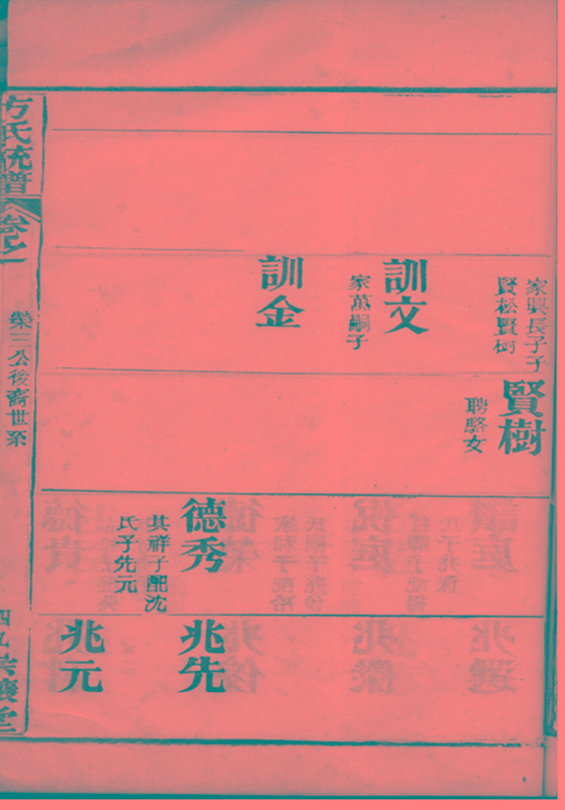 家興長子子
賢松賢樹
訓文
家萬嗣子
訓金
賢樹
聘駱女
德秀
其祥子配沈
氏子先元
兆先
兆元
方氏統譜
卷之
榮三公後裔世系
四九